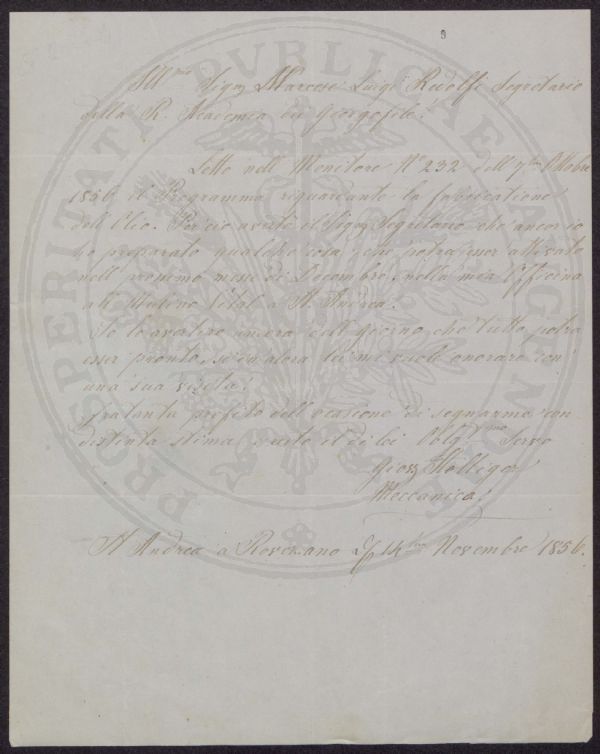 9
Ill.mo Sigr Marcese Luigi Ridolfi Segretario
della R. Academia dei Georgofili
Letto nell Monitore No 232 dell 7 Ottobre
1856 il Programma riguardante la fabricatione
dell Olio. Per cio averto il Sigr Segretario che ancor io
ho preparato qualche cosa che potra esser attivato
nell prossimo messe di Decembre nella mia Officina
a Mulino a St Andrea.
Io lo avertiro ancora dell giorno che tutto potra
esser pronto, se in alora lei mi vuole onorare con
una sua visita.
Fratanto profito dell ocasione di segnarmi con
distinta stima, e resto il di lei Oblg.mo Servo
Meccanico.
St Andrea a Rovezzano 14 Novembre 1856.
PROSPERITATI PVBLICAE AVGENDAE